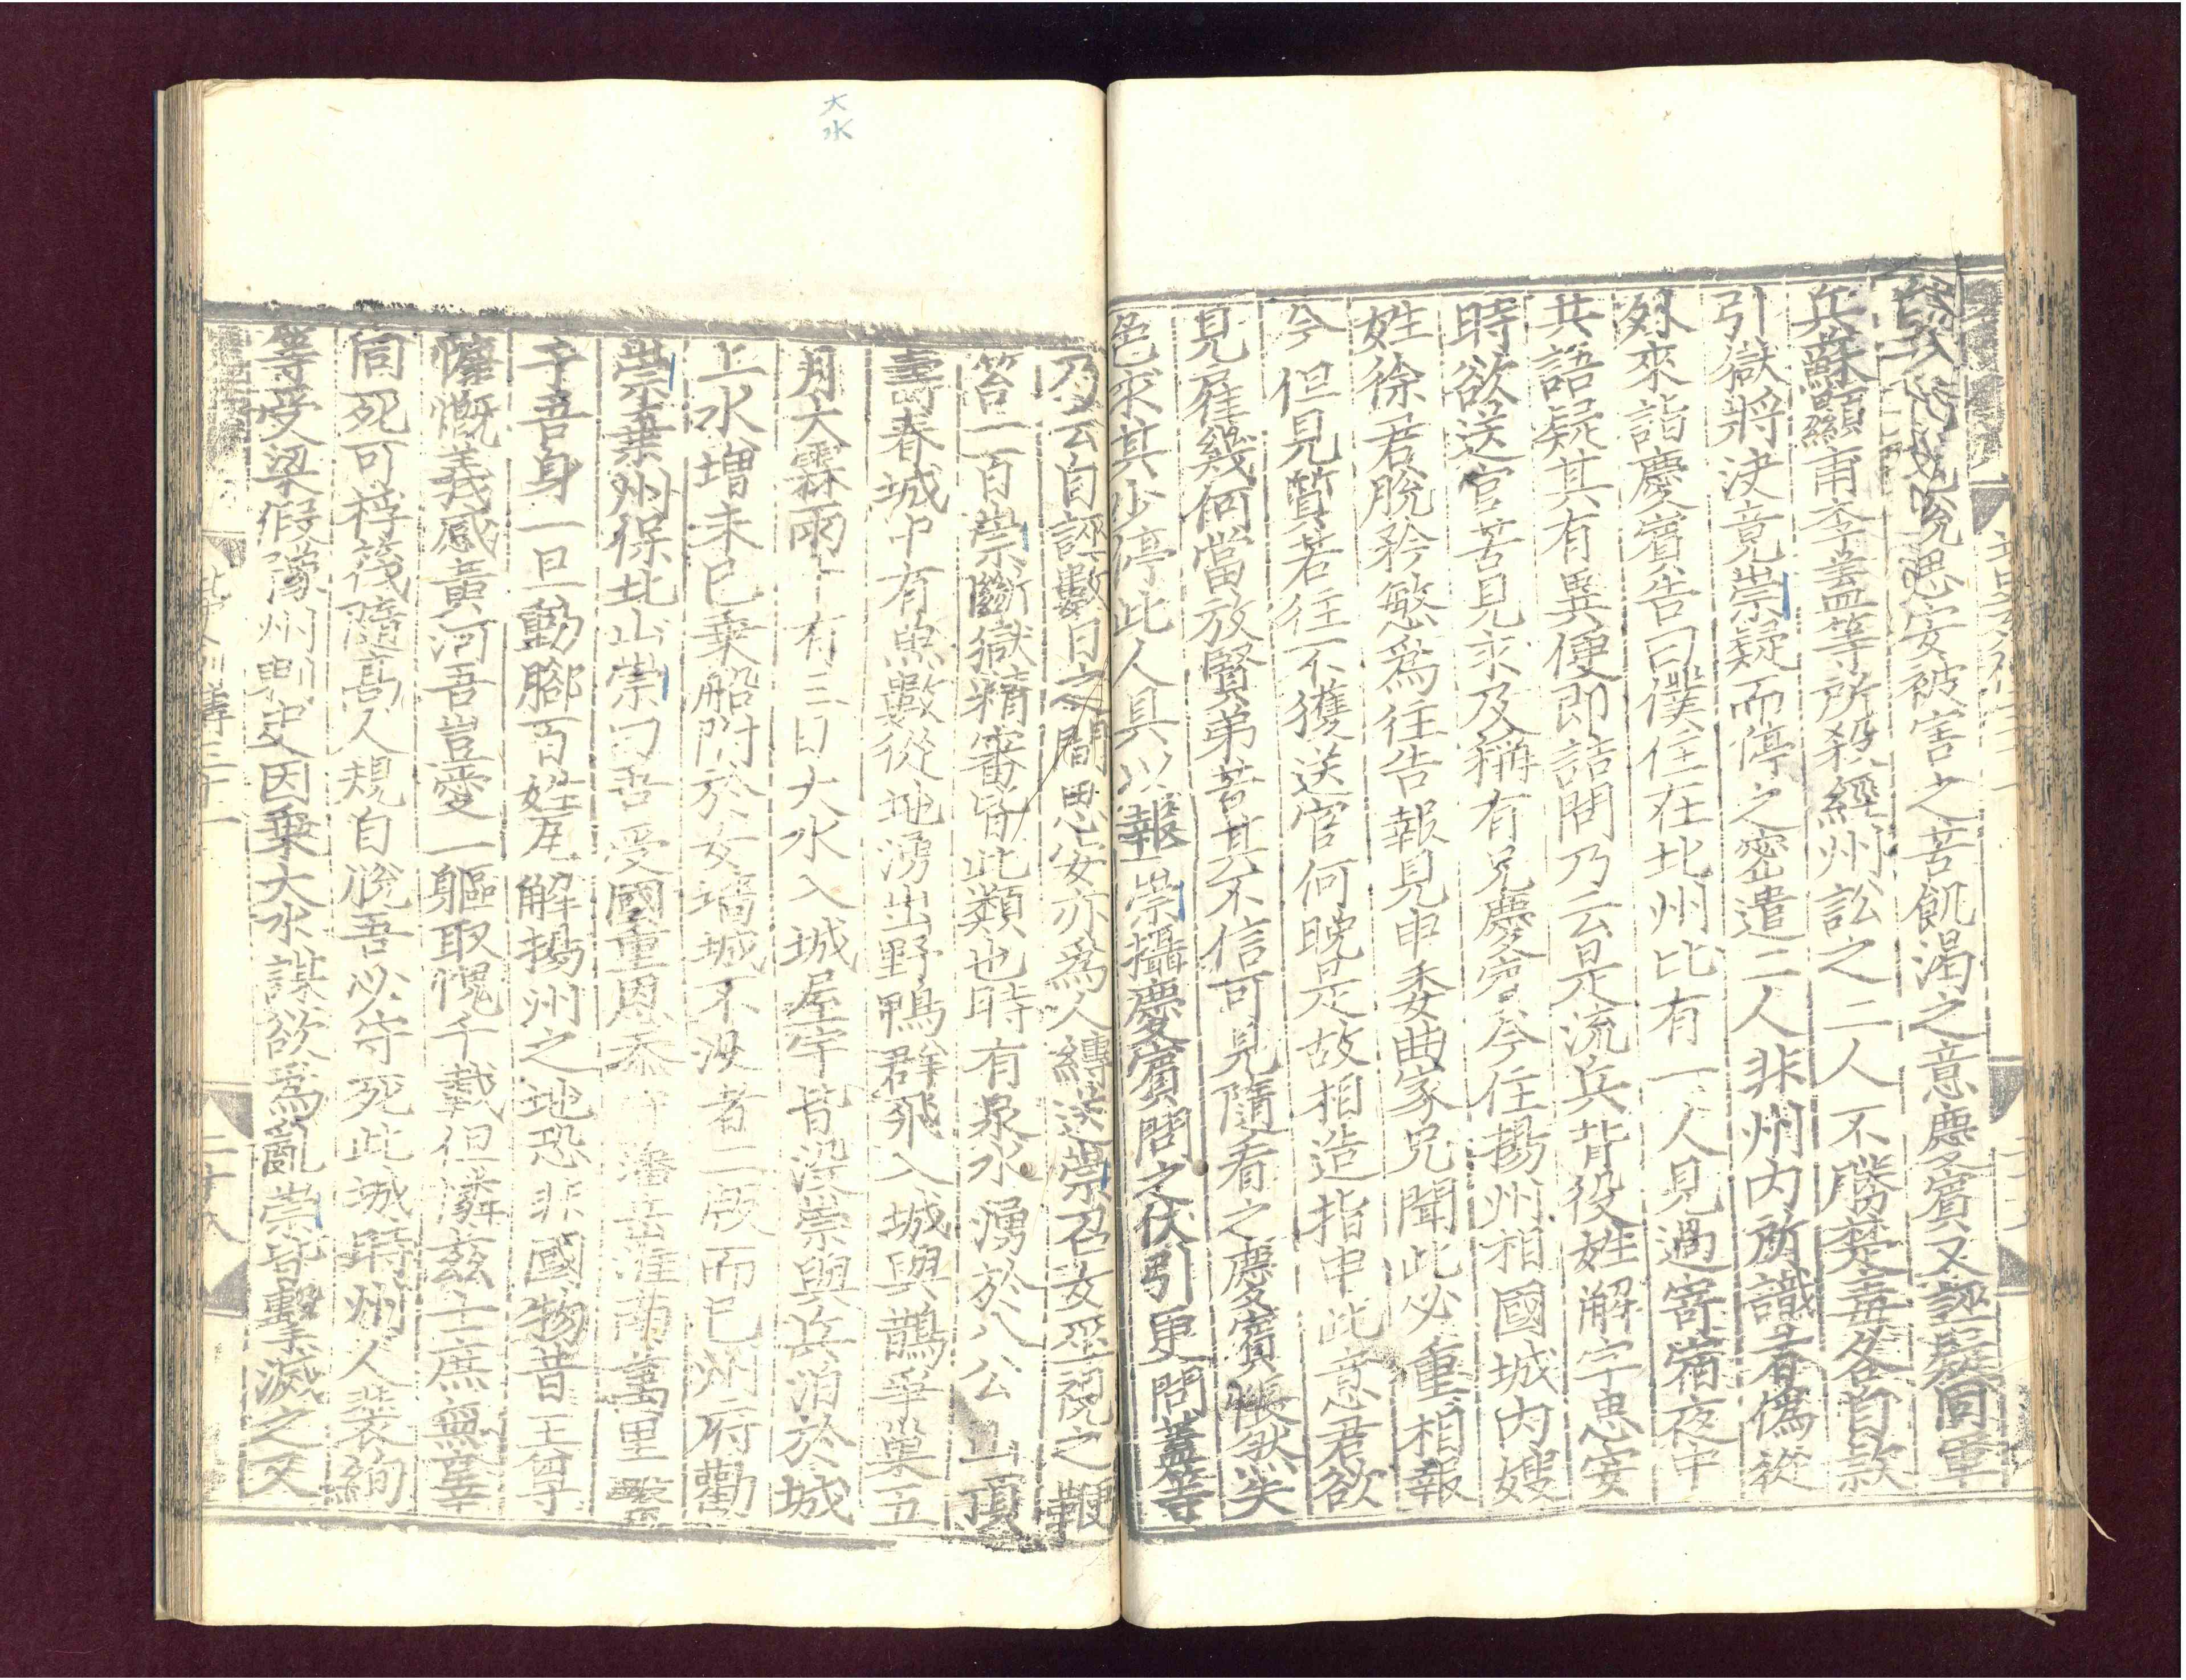 說思安被害之苦飢渴之意慶賓又誣疑同軍
兵蘇顯甫李蓋等所殺經州訟之二人不勝楚毒各自款
引獄將決竟崇疑而停之密遣二人非州內所識者偽從
外來詣慶賓告曰僕住在北州比有一人見過寄宿夜中
共語疑其有異便即詰問乃云是流兵背役姓解字思安
時欲送官苦見求及稱有兄慶賓今住揚州相國城內嫂
姓徐君脫矜愍爲往告報見申委曲家兄聞此必重相報
今但見質若往不獲送官何晚是故相造指申此意君欲
見雇幾何當放賢弟若其不信可見隨看之慶賓悵然失
色求其少停此人具以報崇攝慶賓問之伏引更問蓋等
大水
乃云自誣數日之間思安亦爲人縛送崇召女巫視之鞭
笞一百崇斷獄精審皆此類也時有泉水湧於八公山頂
壽春城中有魚數從地湧出野鴨群飛入城與鵲爭巢五
月大霖雨十有三日大水入城屋宇皆没崇與兵泊於城
上水增未已乗船附於女墻城不没者二版而已州府勸
崇棄州保北山崇曰吾受國重恩忝守潘岳淮南萬里繫
于吾身一旦動脚百姓瓦解揚州之地恐非國物昔王尊
慷慨義感黃河吾豈愛一軀取愧千載但憐茲士庶無辜
同死可桴筏隨高人規自脫吾必守死此城時州人裴絢
等受梁假豫州刺史因乗大水謀欲爲亂崇皆擊滅之又
傳三十一 二十八